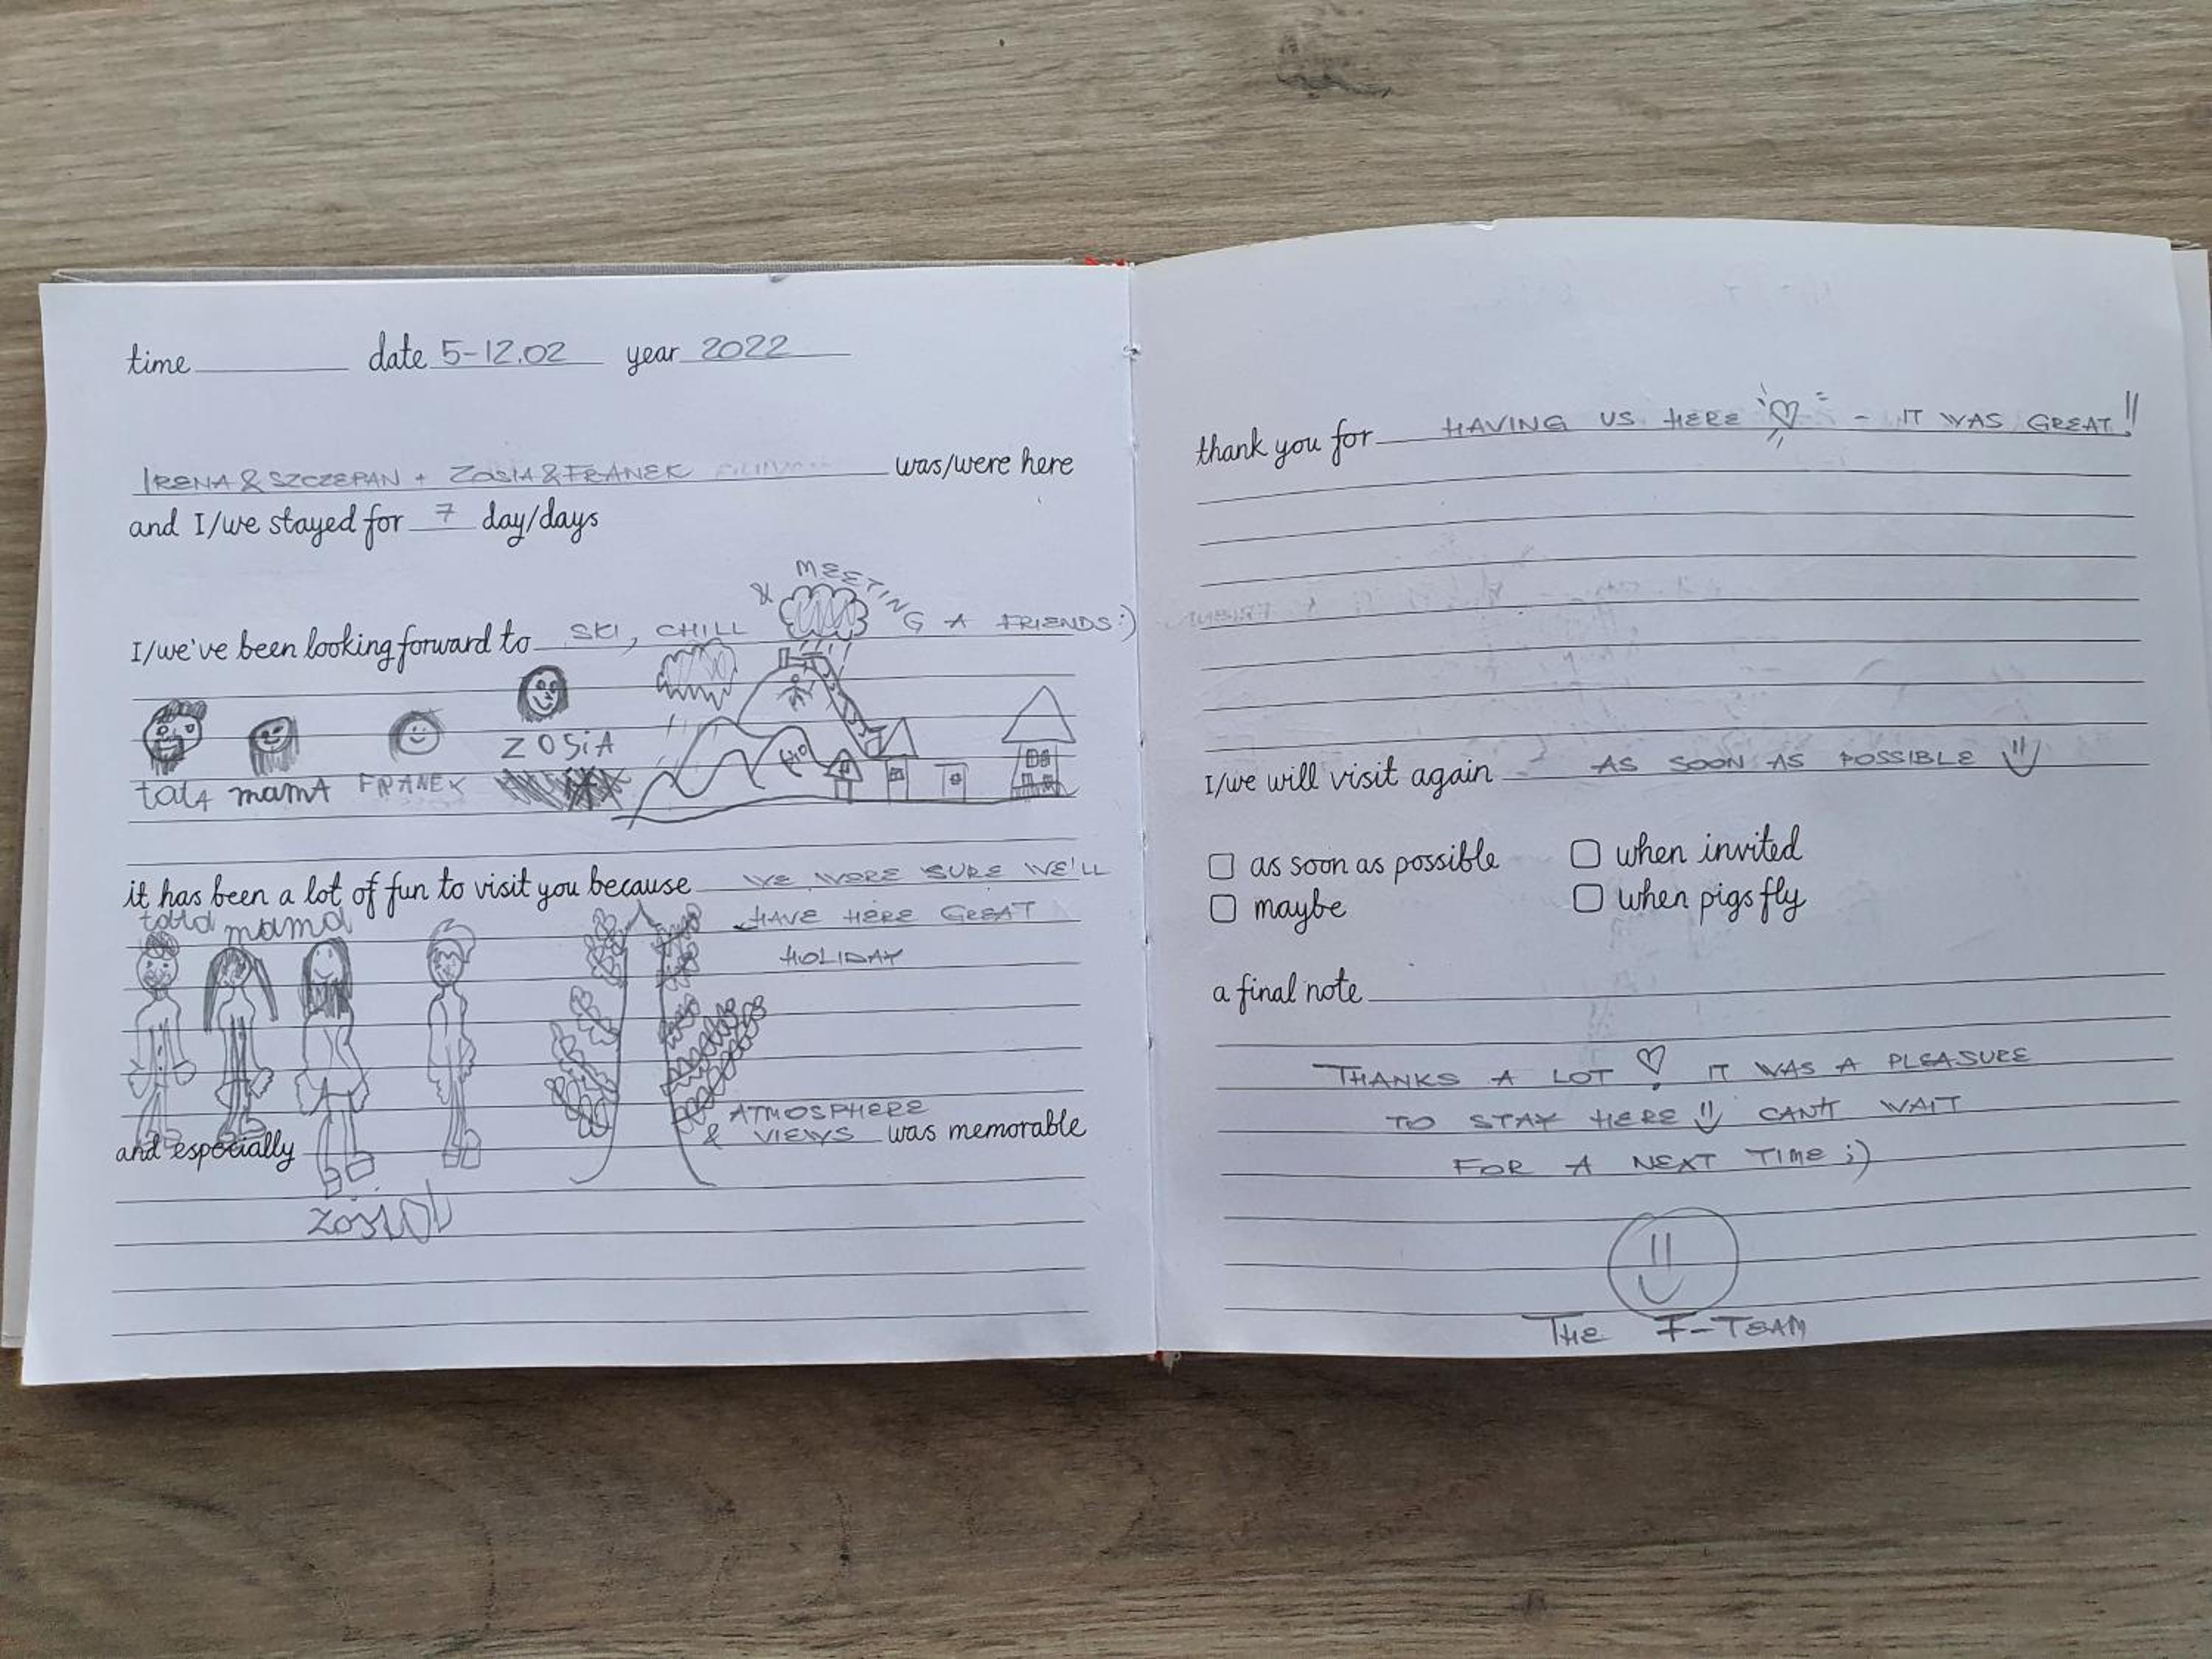 time date 5-12.02 year 2022
IRENA & SZCZEPAN + ZOSIA & FRANEK was/were here
and I/we stayed for 7 day/days
I/we've been looking forward to SKI, CHILL & MEETING A FRIENDS :)
ZOSiA
tatA mamA FRANEK
it has been a lot of fun to visit you because WE WERE SURE WE'LL
HAVE HERE GREAT
HOLIDAY
tata mama
ATMOSPHERE
and especially & VIEWS was memorable
Zosia
thank you for HAVING US HERE ♡ - IT WAS GREAT!!
I/we will visit again AS SOON AS POSSIBLE
as soon as possible when invited
maybe when pigs fly
a final note
THANKS A LOT ♡! IT WAS A PLEASURE
TO STAY HERE CAN'T WAIT
FOR A NEXT TIME ;)
THE F-TEAM